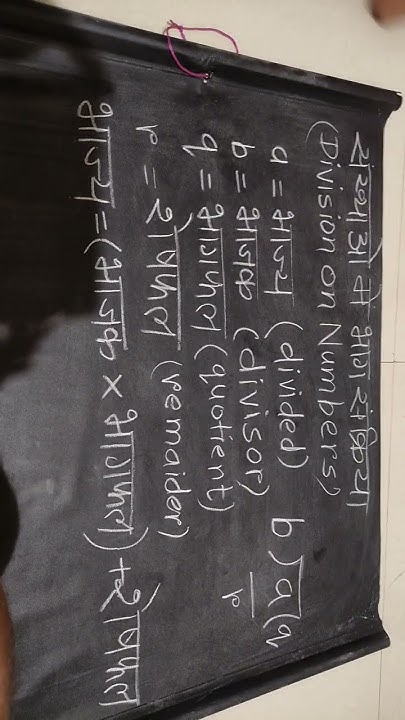 संख्याओं में भाग संक्रिया
(Division on Numbers)
a = भाज्य (divided)
b = भाजक (divisor)
q = भागफल (quotient)
r = शेषफल (remaider)
b)a(q
r
भाज्य = (भाजक × भागफल) + शेषफल